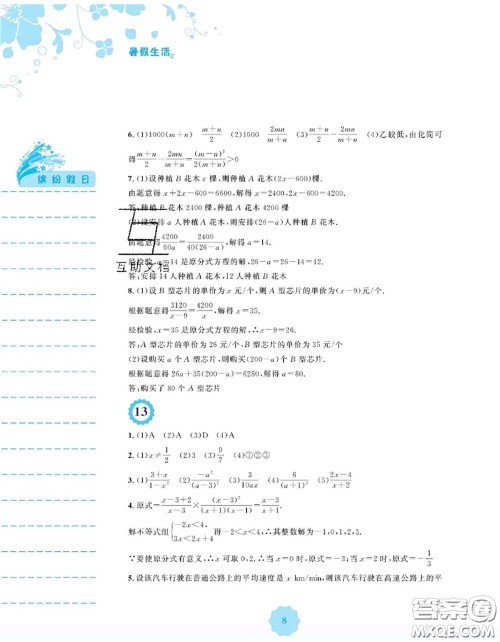 暑假生活
缤纷假日
6. (1)1000(m+n) (m+n)/2 (2)1600 2mn/(m+n) (3)(m+n)/2 2mn/(m+n) (4)乙较低,由化简可
得(m+n)/2-2mn/(m+n)=(m-n)²/2(m+n)>0
7. (1)设种植B花木x棵,则种植A花木(2x-600)棵.
由题意得x+2x-600=6600,解得x=2400,2x-600=4200.
答:种植B花木2400棵,种植A花木4200棵
(2)设安排a人种植A花木,则安排(26-a)人种植B花木.
由题意得4200/60a=2400/40(26-a),解得a=14.
经检验,a=14是原分式方程的解,26-a=26-14=12.
答:安排14人种植A花木,12人种植B花木
互助文档
8. (1)设B型芯片的单价为x元/个,则A型芯片的单价为(x-9)元/个.
根据题意得3120/(x-9)=4200/x,解得x=35.
经检验,x=35是原分式方程的解,∴x-9=26.
答:A型芯片的单价为26元/个,B型芯片的单价为35元/个
(2)设购买a个A型芯片,则购买(200-a)个B型芯片.
根据题意得26a+35(200-a)=6280,解得a=80.
答:购买了80个A型芯片
13
1. (1)A (2)A (3)D (4)A
2. (1)x≠1/2 (2)3 (3)9/7 (4)①②③
3. (1)(3+x)/(1-x²) (2)-a²/(a-3)² (3)3/10ax (4)6/(a+1)² (5)(2x-4)/(x+2)
4. 原式=(x-3+2)/(x-3)×(x-3)²/(x+1)(x-1)=(x-3)/(x+1).
解不等式组{-2x<4, 3x<2x+4得-2<x<4,∴其整数解为-1,0,1,2,3.
∵要使原分式有意义,∴x可取0,2.∴当x=0时,原式=-3;当x=2时,原式=-1/3
5. 设该汽车行驶在普通公路上的平均速度是x km/min,则该汽车行驶在高速公路上的平
8
答案圈
MXQE.COM